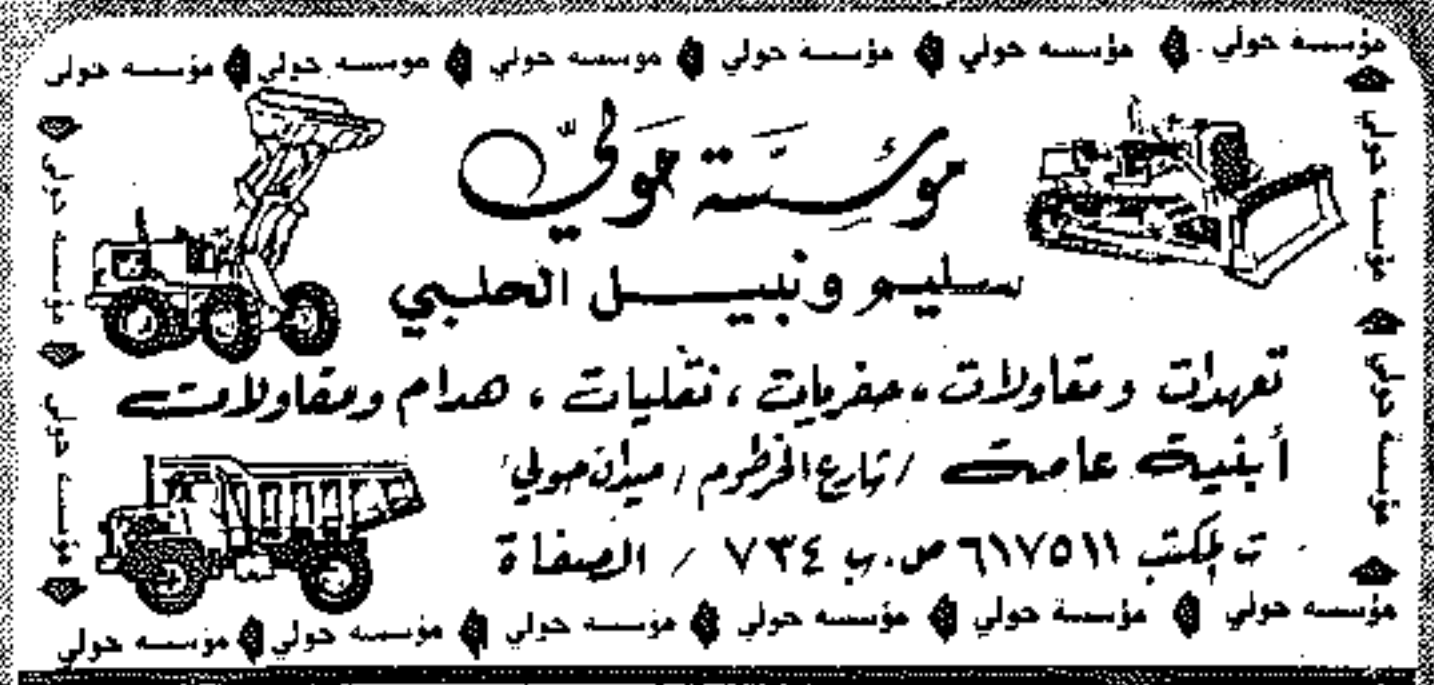 مؤسسة حولي مؤسسه حولي مؤسسة حولي موسسه حولي موسسه حولي مؤسسه حولي
مؤسسة حولي
سليم ونبيل الحلبي
تعهدات ومقاولات، حفريات، نقليات، هدام ومقاولات
أبنية عامة / شارع الخرطوم / ميدان حولي
ت المكتب ٦١٧٥١١ ص.ب ٧٣٤ / الصفاة
مؤسسه حولي مؤسسة حولي مؤسسه حولي مؤسسه حولي مؤسسه حولي مؤسسه حولي